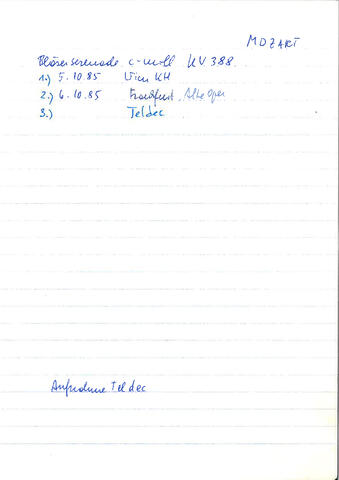 MOZART
Bläserserenade c-moll KV 388
1.) 5.10.85 Wien KH
2.) 6.10.85 Frankfurt, Alte Oper
3.) Teldec
Aufnahme Teldec